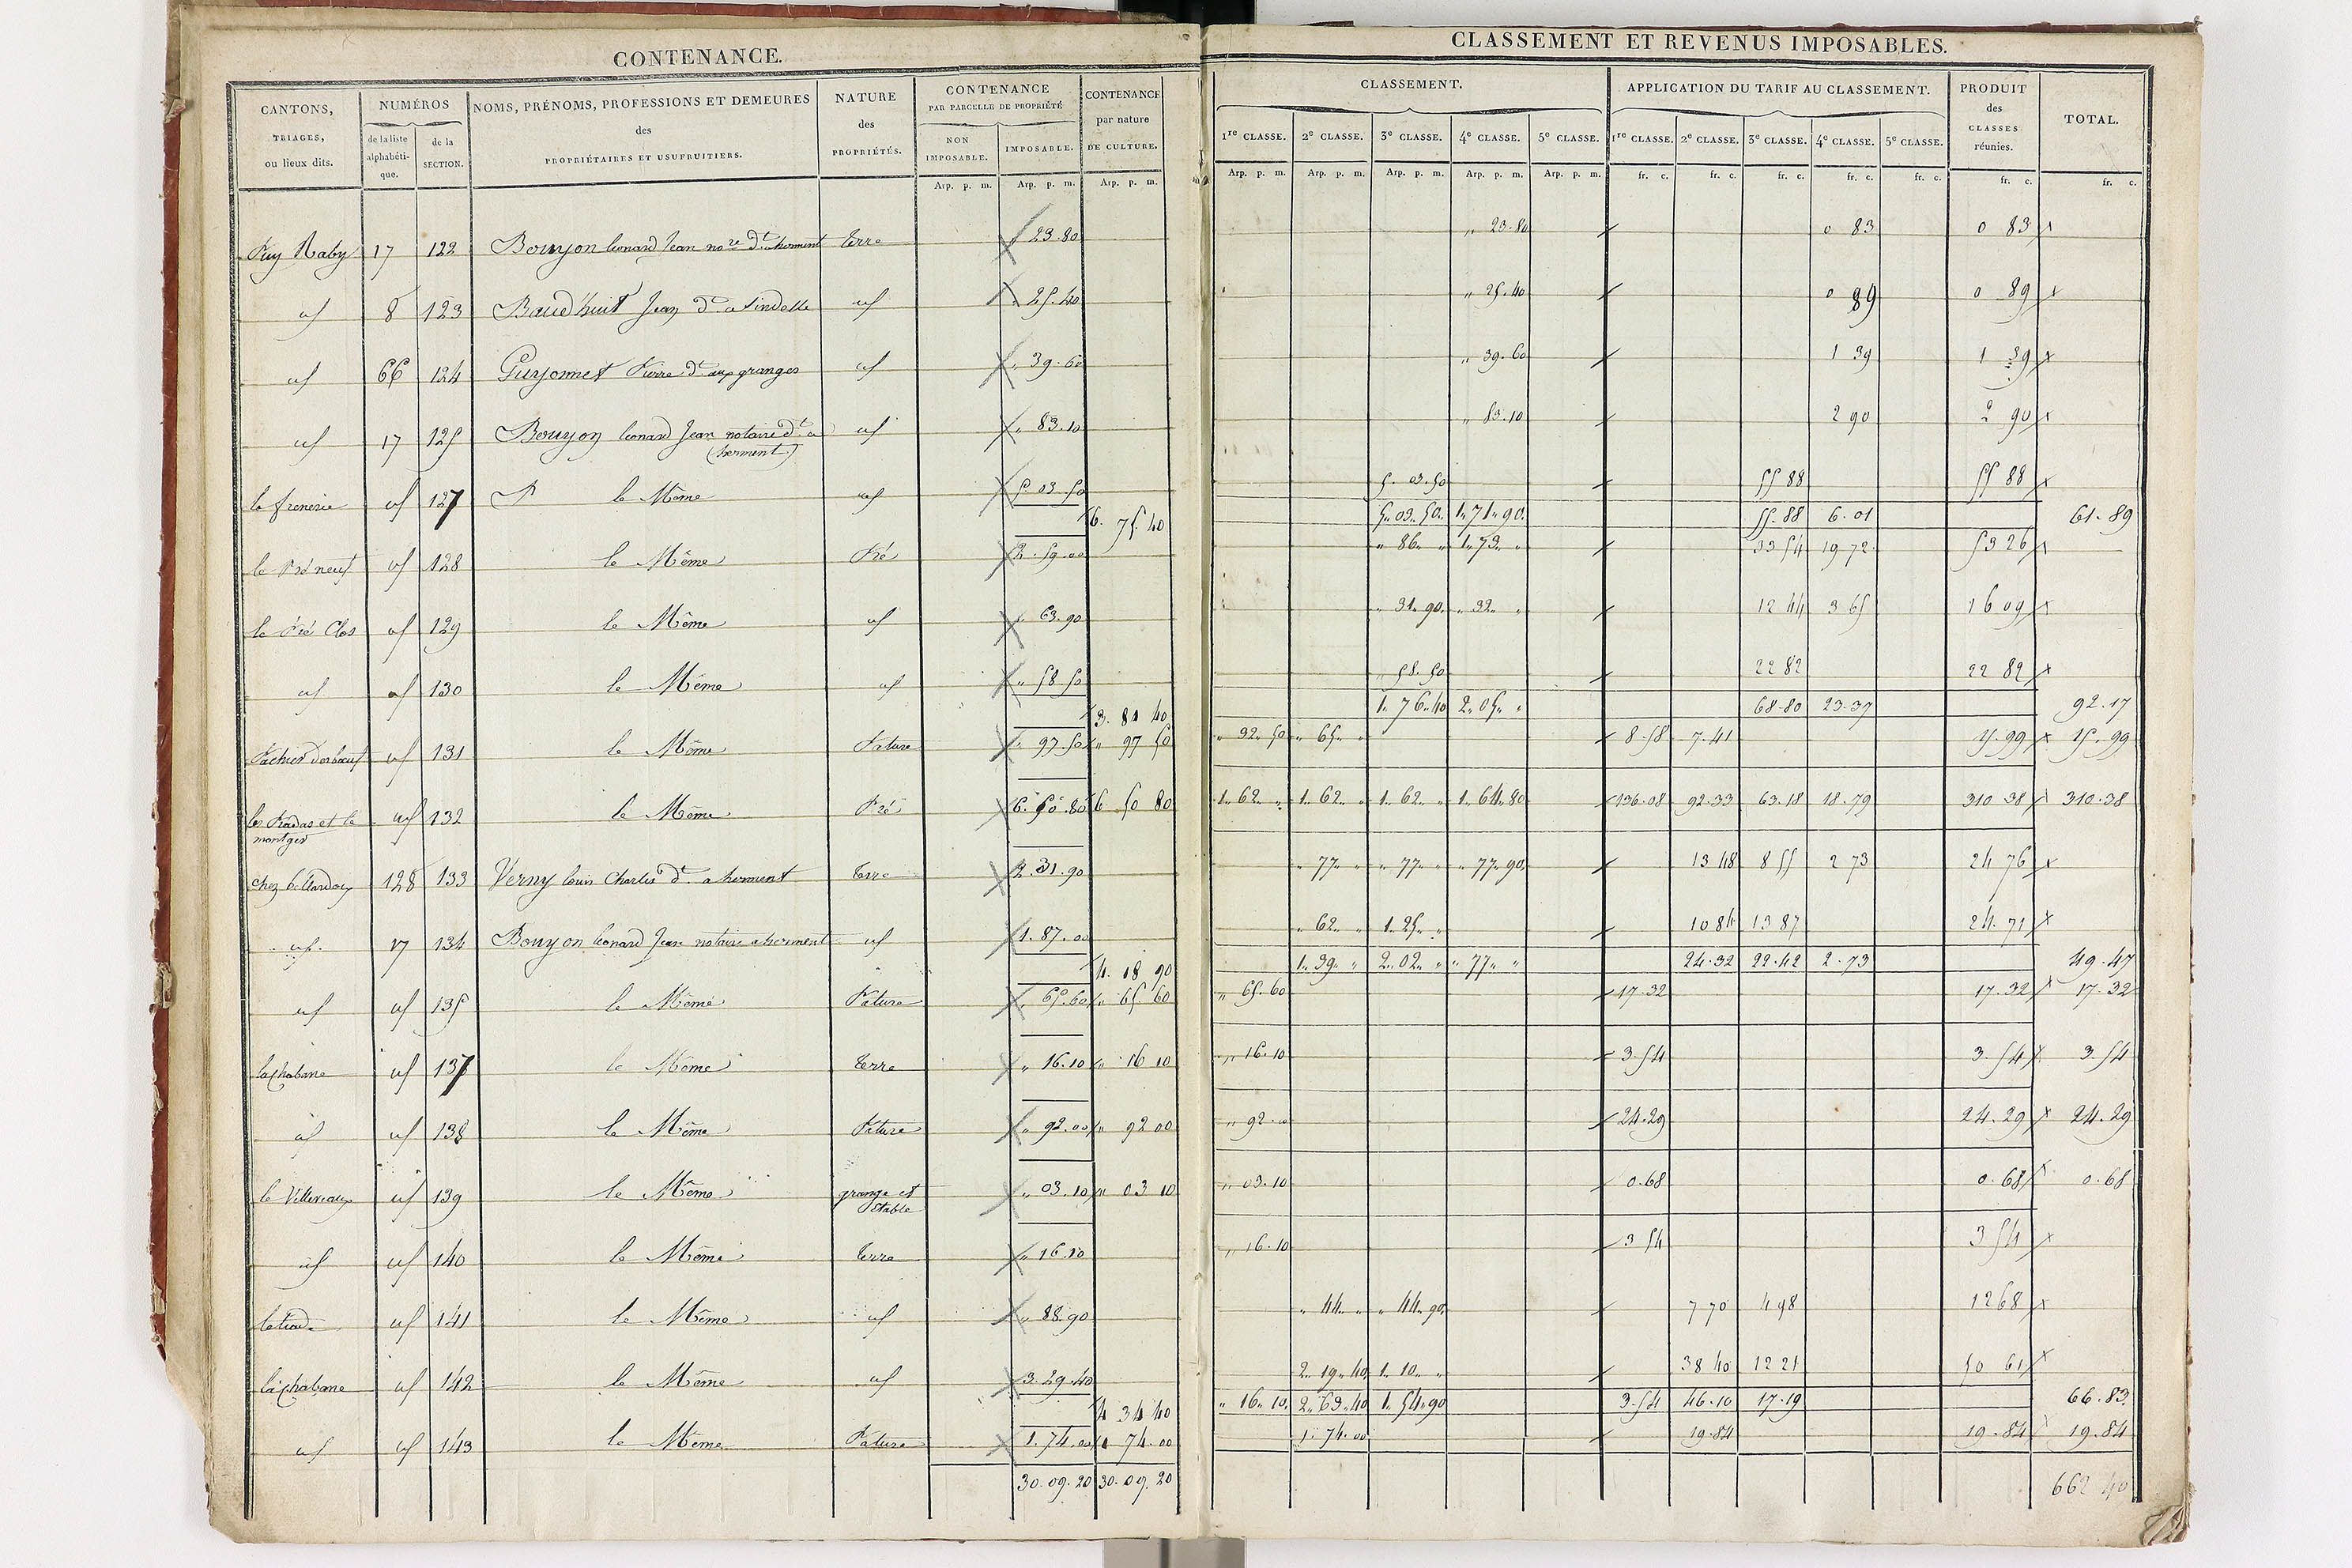 CONTENANCE.
CLASSEMENT ET REVENUS IMPOSABLES.
CANTONS, TRIAGES, ou lieux dits.
NUMÉROS
de la liste alphabétique.
de la SECTION.
NOMS, PRÉNOMS, PROFESSIONS ET DEMEURES des PROPRIÉTAIRES ET USUFRUITIERS.
NATURE des PROPRIÉTÉS.
CONTENANCE PAR PARCELLE DE PROPRIÉTÉ
NON IMPOSABLE.
IMPOSABLE.
CONTENANCE par nature DE CULTURE.
CLASSEMENT.
1re CLASSE. 2e CLASSE. 3e CLASSE. 4e CLASSE. 5e CLASSE.
APPLICATION DU TARIF AU CLASSEMENT.
1re CLASSE. 2e CLASSE. 3e CLASSE. 4e CLASSE. 5e CLASSE.
PRODUIT des CLASSES réunies.
TOTAL.
Arp. p. m. Arp. p. m. Arp. p. m. Arp. p. m. Arp. p. m. Arp. p. m. Arp. p. m. Arp. p. m. fr. c. fr. c. fr. c. fr. c. fr. c. fr. c. fr. c.
Puy Raby 17 122 Bouyon leonard Jean nore dt a herment terre " 23.80 " 23.80 0 83 0 83
id 8 123 Baudhuit Jean dt a id " 25.40 " 25.40 0 89 0 89
id 66 124 Guyonnet Pierre dt aux granges id " 39.60 " 39.60 1 39 1 39
id 17 125 Bouyon leonard Jean notaire dt a id " 83.10 " 83.10 2 90 2 90
(herment)
id 127 le Même id 5 03 50 5. 03.50 55 88 55 88
6. 75.40 5. 03. 50 1. 71. 90 55.88 6.01 61.89
le Pré neuf id 128 le Même Pré 2.59.00 " 86 " 1. 73 " 33 54 19 72 53 26
le Pré Clos id 129 le Même id " 63.90 " 31. 90 " 32 " 12 44 3 65 16 09
id id 130 le Même id " 58 50 " 58.50 22 82 22 82
3. 81 40 1. 76. 40 2. 05. " 68.80 23.37 92.17
id 131 le Même Pature " 97.50 " 97 50 " 32. 50 " 65. " 8.58 7.41 15.99 15.99
les Pradas et le id 132 le Même Pré 6.50.80 6 50 80 1. 62 " 1. 62 " 1. 62 " 1. 64. 80 136.08 92.33 63.18 18.79 310.38 310.38
montger
128 133 Verny louis Charles dt a herment terre 2.31.90 " 77 " " 77 " " 77. 90 13 48 8 55 2 73 24 76
id 17 134 Bouyon leonard Jean notaire a herment id 1.87.00 " 62 " 1. 25. " 10 84 13 87 24.71
4. 18 90 1. 39 " 2. 02 " " 77 " 24.32 22.42 2.73 49.47
id id 135 le Même Pature " 65.60 " 65 60 " 65. 60 17.32 17.32 17.32
la Chabane id 137 le Même terre " 16.10 " 16 10 " 16.10 3.54 3.54 3.54
id id 138 le Même Pature " 92.00 " 92 00 " 92.00 24.29 24.29 24.29
id 139 le Même grange et " 03.10 " 03 10 " 03.10 0.68 0.68 0.68
étable
id id 140 le Même terre " 16.10 " 16.10 3 54 3 54
id 141 le Même id " 88.90 " 44 " " 44. 90 7 70 4 98 12 68
la Chabane id 142 le Même id 3.29.40 2. 19. 40 1. 10. " 38 40 12 21 50 61
4 34 40 " 16. 10 2. 63. 40 1. 54. 90 3.54 46.10 17.19 66.83
id id 143 le Même Pature 1.74.00 1 74.00 1. 74.00 19.84 19.84 19.84
30.09.20 30.09.20 662 40